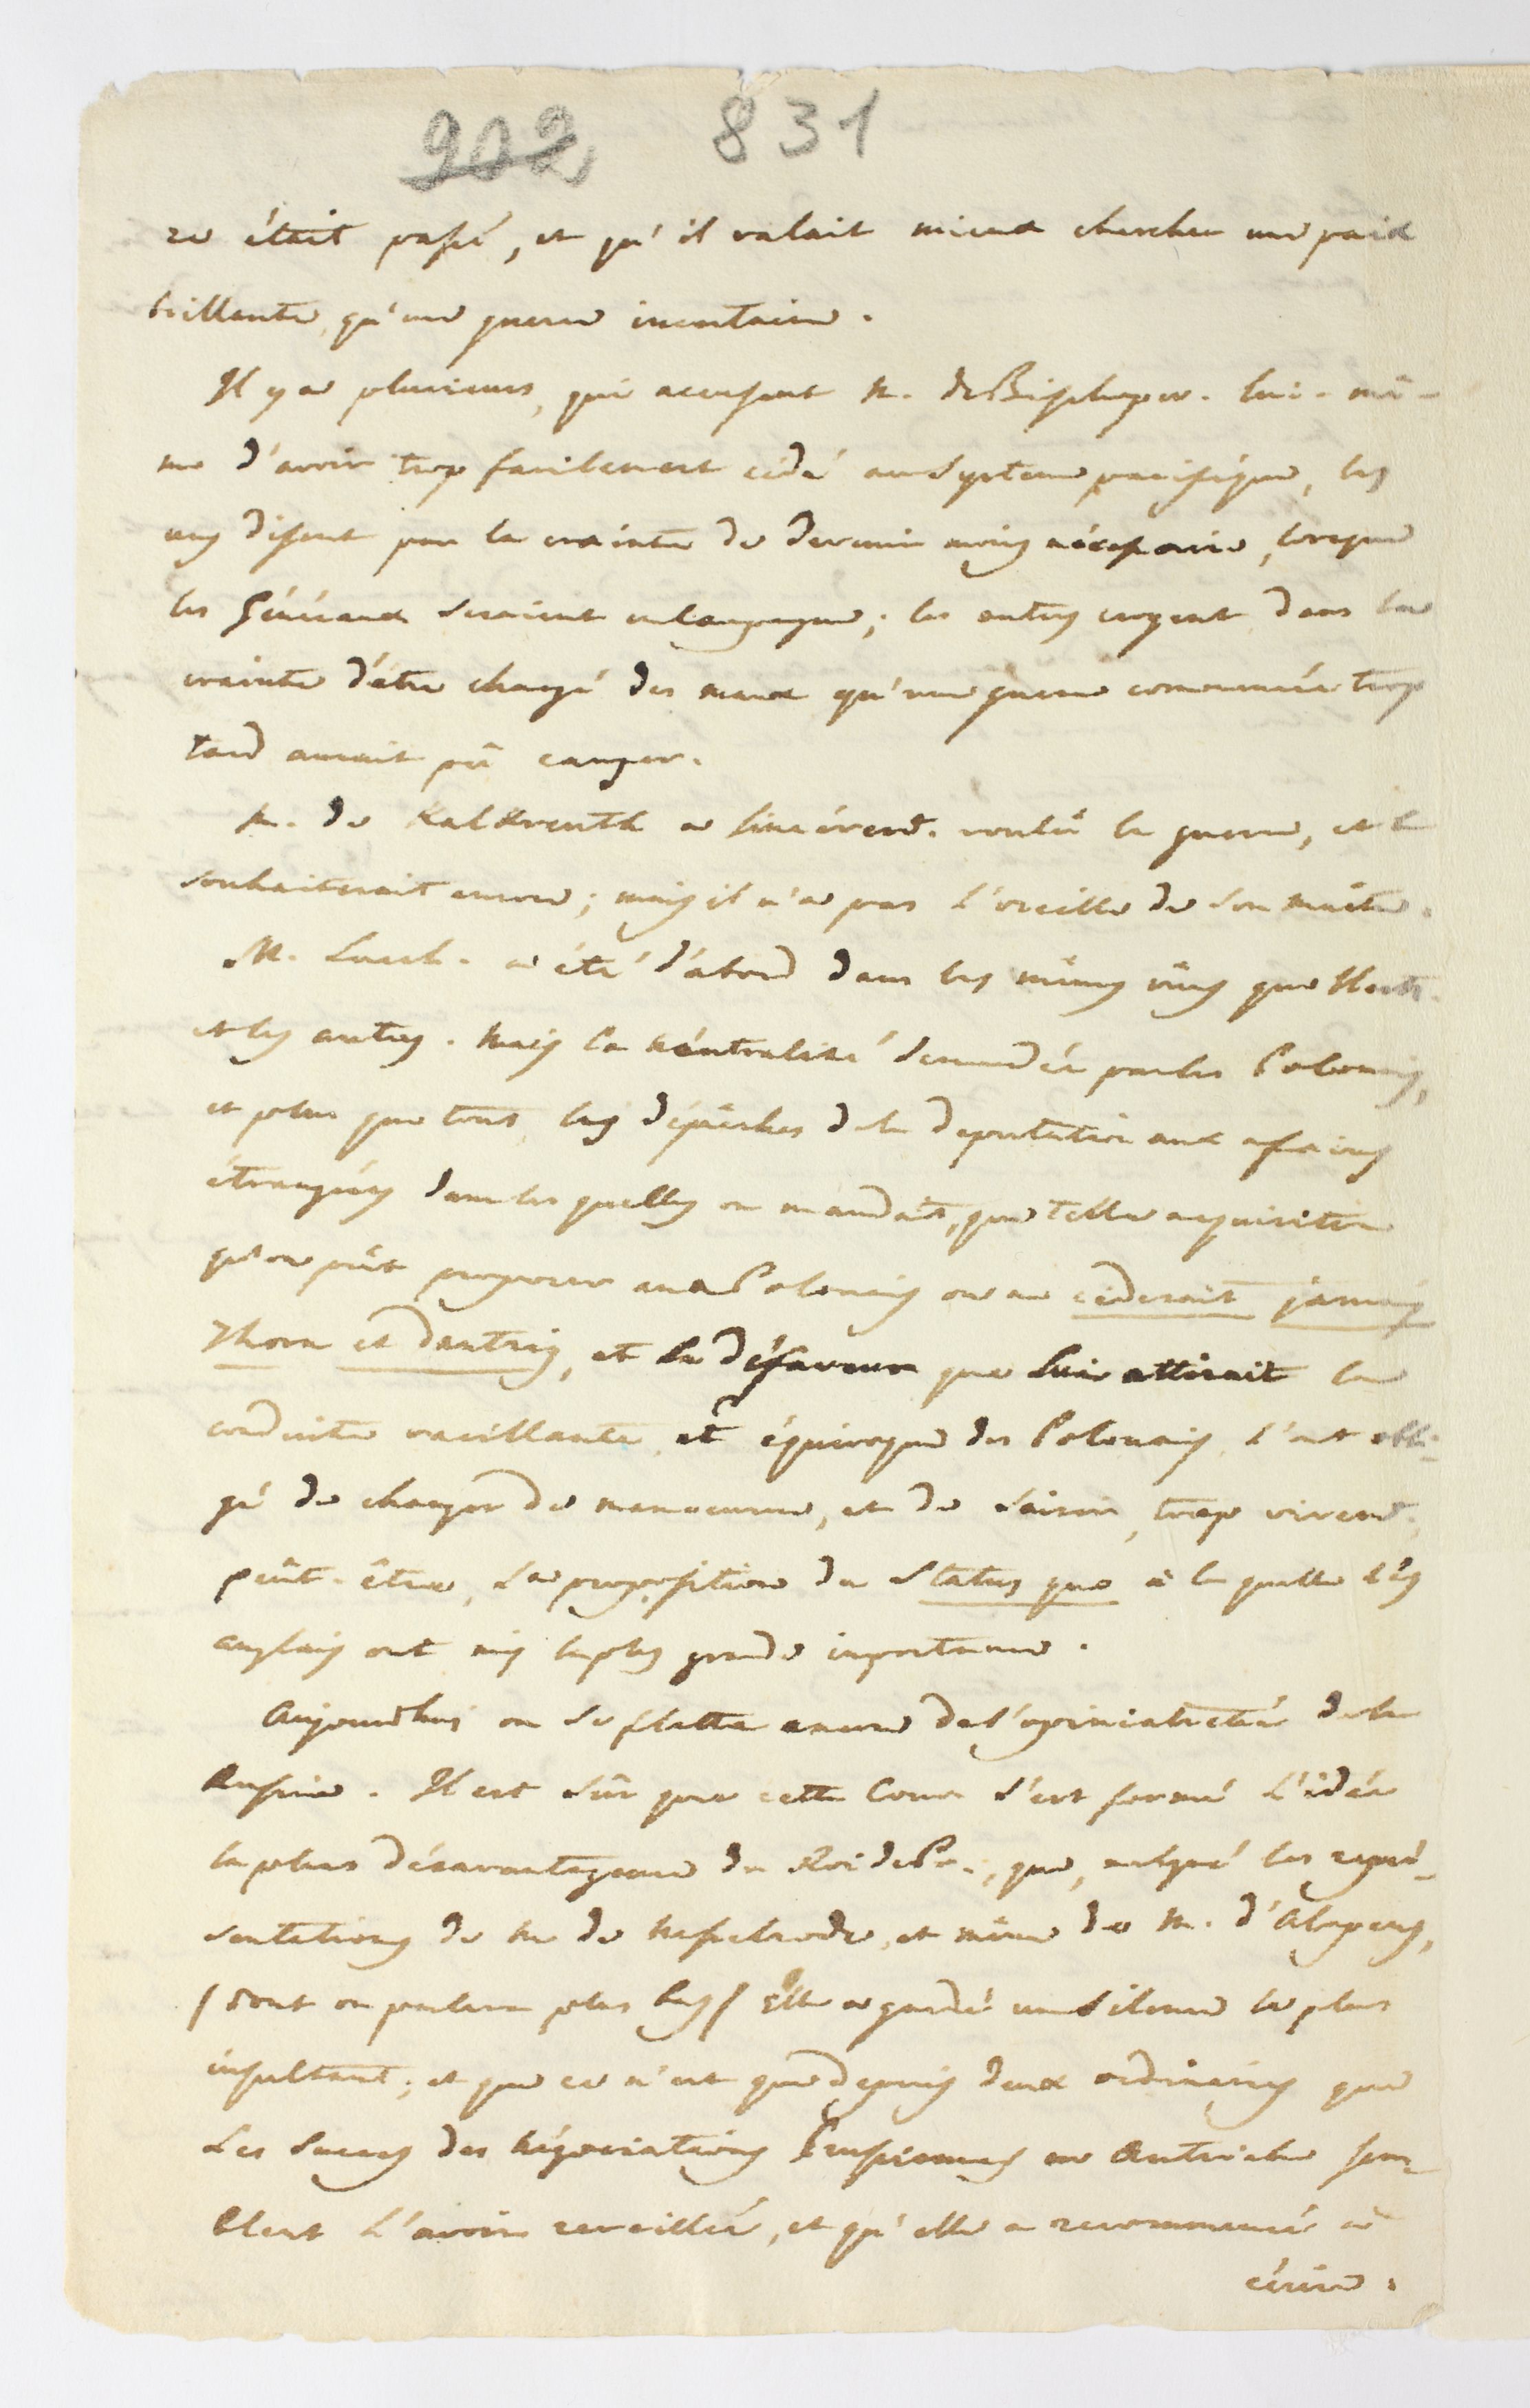 902 831
re était passé, et qu'il valait mieux chercher une paix
brillante, qu'une guerre incertaine.
Il y a plusieurs, qui accusent M. de Bischopsw. lui-mê-
me d'avoir trop facilement cédé au Systeme pacifique, les
uns disent par la crainte de devenir moins nécessaire, lorsque
les Généraux seraient en Campagne; les autres croyent dans la
crainte d'être chargé des maux qu'une guerre commencée trop
tard aurait pû causer.
M. de Kalkreuth a sincérem̃t. voulû la guerre, et la
souhaiterait encore; mais il n'a pas l'oreille de son maître.
M. Lucch. a été d'abord dans les mêmes vûes que Hertz.
et les autres. Mais la Néutralité demandée par les Polonais,
et plus que tout, les dépêches de la Deputation aux affaires
étrangéres dans les quelles on mandait, que telle acquisition
qu'on pût proposer aux Polonais on ne cèderait jamais
Thorn et Dantzig, et la défaveur que lui attirait la
conduite vacillante et équivoque des Polonais, l'ont obli-
gé de changer de manoeuvre, et de saisir, trop vivem̃t.
peût-être, la proposition du Status quo à la quelle les
anglais ont mis la plus grande importance.
Aujourdhui on se flatte encore de l'opiniatreté de la
Russie. Il est sûr que cette Cour s'est formé l'idée
la plus désavantageuse du Roi de Pr., que, malgré les repré-
sentations de M. de Nesselrode, et même de M. d'Alopeus,
/ dont on parlera plus bas / Elle a gardé un silence le plus
insultant; et que ce n'est que depuis deux ordinaires que
les succes des Négociations Prussiennes en Autriche sem-
blent l'avoir reveillée, et qu'elle a recommencé à
écrire.